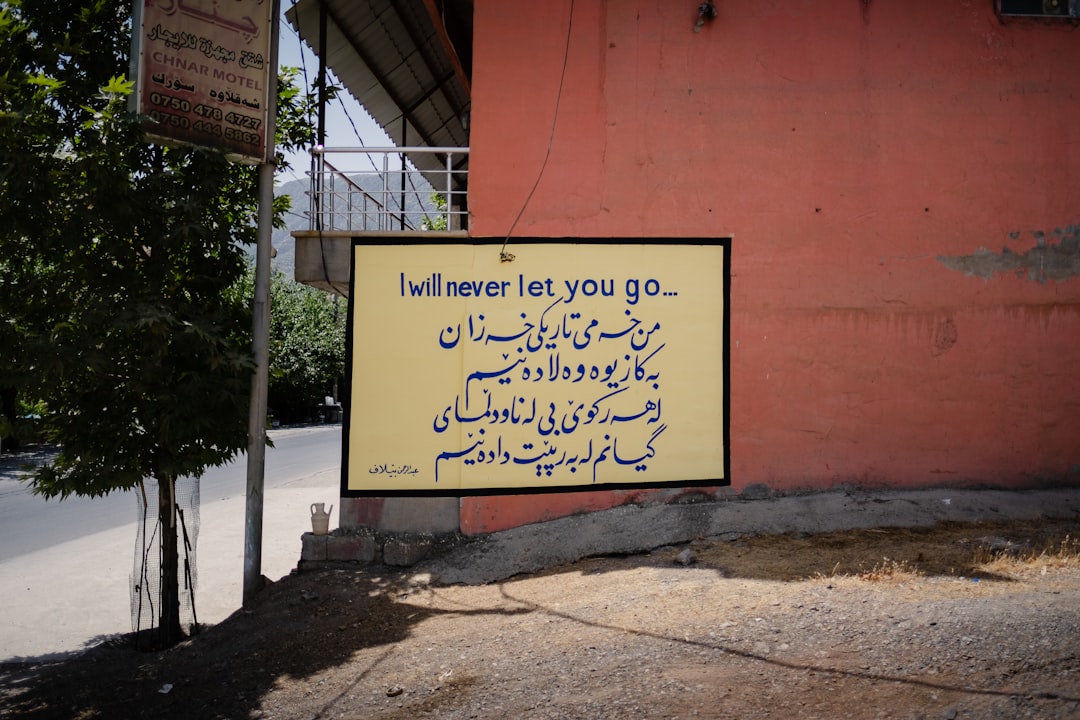 چنار
شقق مجهزة للايجار
CHNAR MOTEL
شەقڵاوە سورك
0750 478 4727
0750 444 5862
I will never let you go...
من خەمی تاریکی خەزان
بە کازیوە وەلا دەنێم
لە هەر کوێ بی لە ناو دڵمای
گیانم لە بەر پێت دادەنێم
عبدالرحمن بێلاف